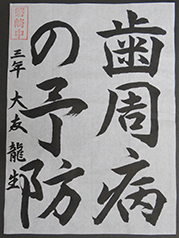 歯周病
の予防
三年 大友 龍生